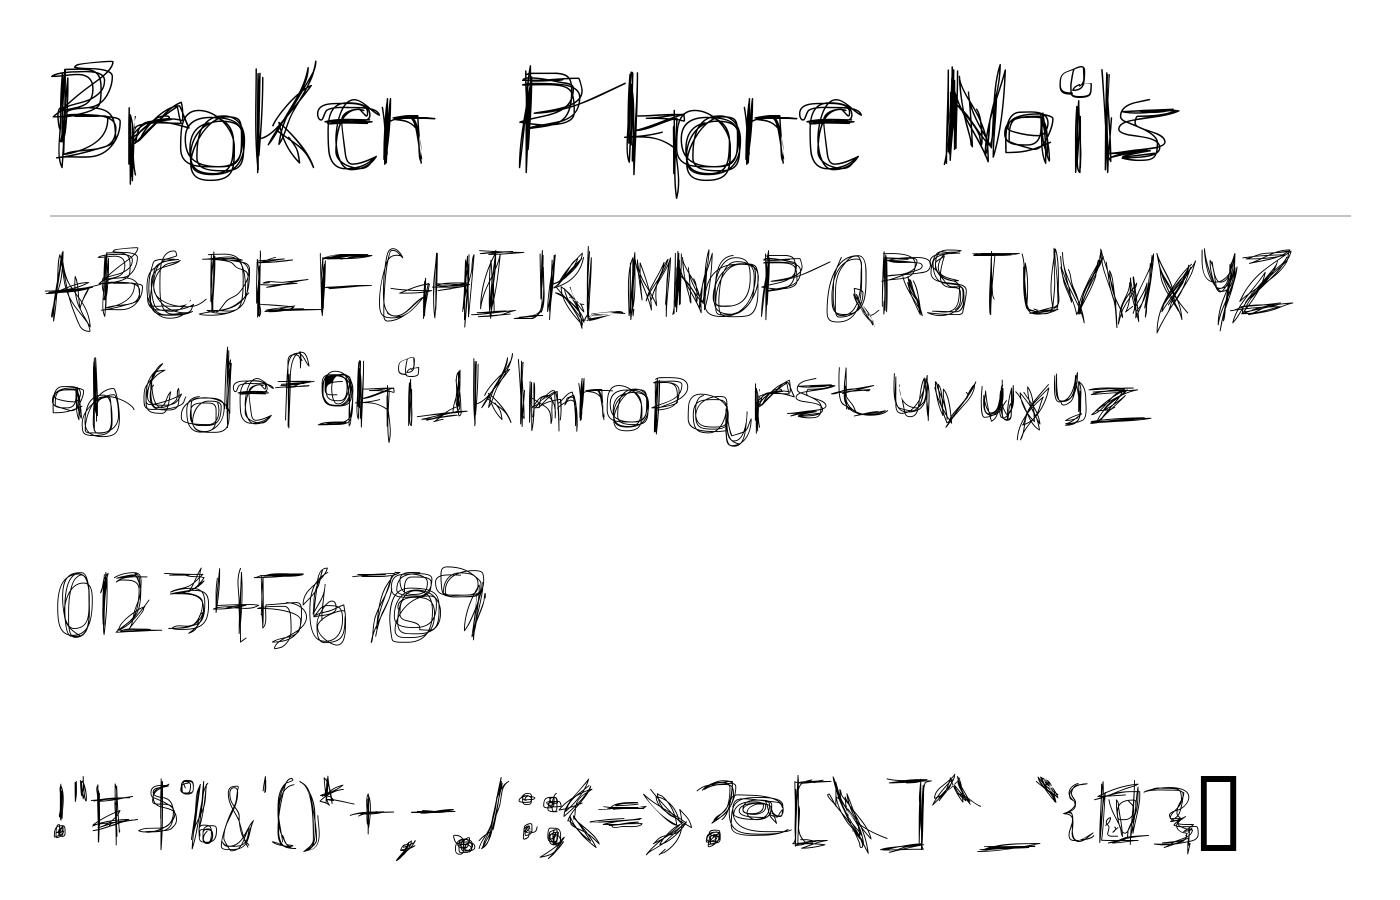 Broken Phone Nails
ABCDEFGHIJKLMNOPQRSTUVWXYZ
abcdefghijklmnopqrstuvwxyz
0123456789
!"#$%&'()*+,-./:;<=>?@[\]^_`{|}